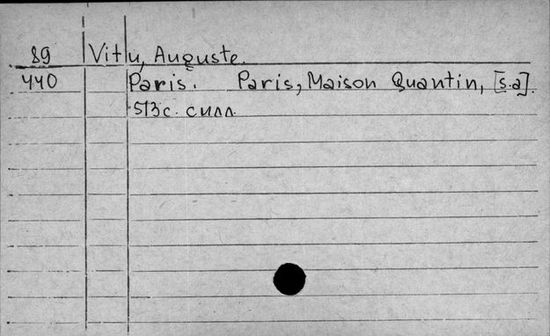 89 Vitu, Auguste.
440 Paris. Paris, Maison Quantin, [s.a].
513 с. силл.